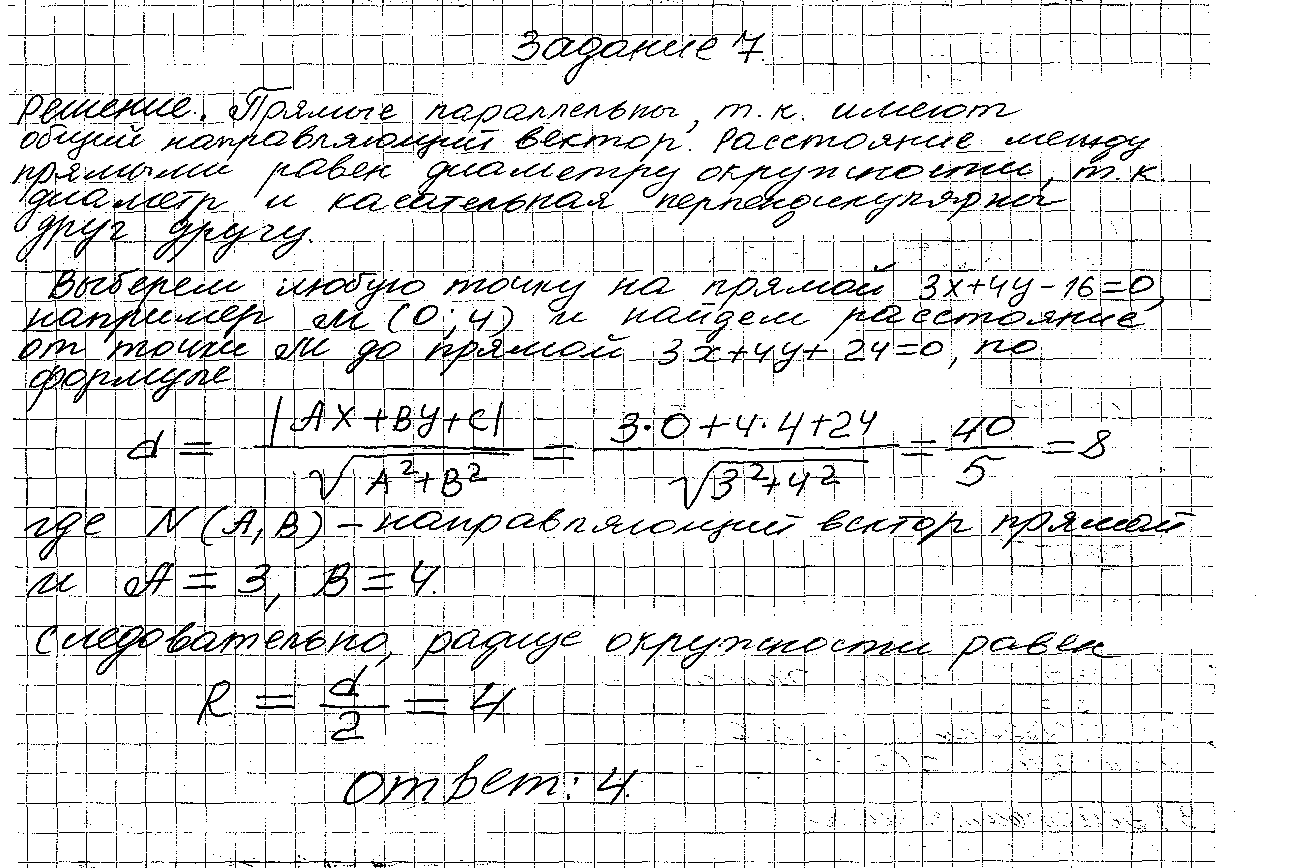 Задание 7.
Решение. Прямые параллельны, т.к. имеют
общий направляющий вектор. Расстояние между
прямыми равен диаметру окружности, т.к.
диаметр и касательная перпендикулярны
друг другу.
Выберем любую точку на прямой 3x+4y-16=0,
например M (0;4) и найдем расстояние
от точки M до прямой 3x+4y+24=0, по
формуле
d = |Ax+By+C| / √(A²+B²) = 3·0+4·4+24 / √(3²+4²) = 40/5 = 8
где N (A,B) – направляющий вектор прямой
и A = 3, B = 4.
Следовательно, радиус окружности равен
R = d/2 = 4
Ответ: 4.